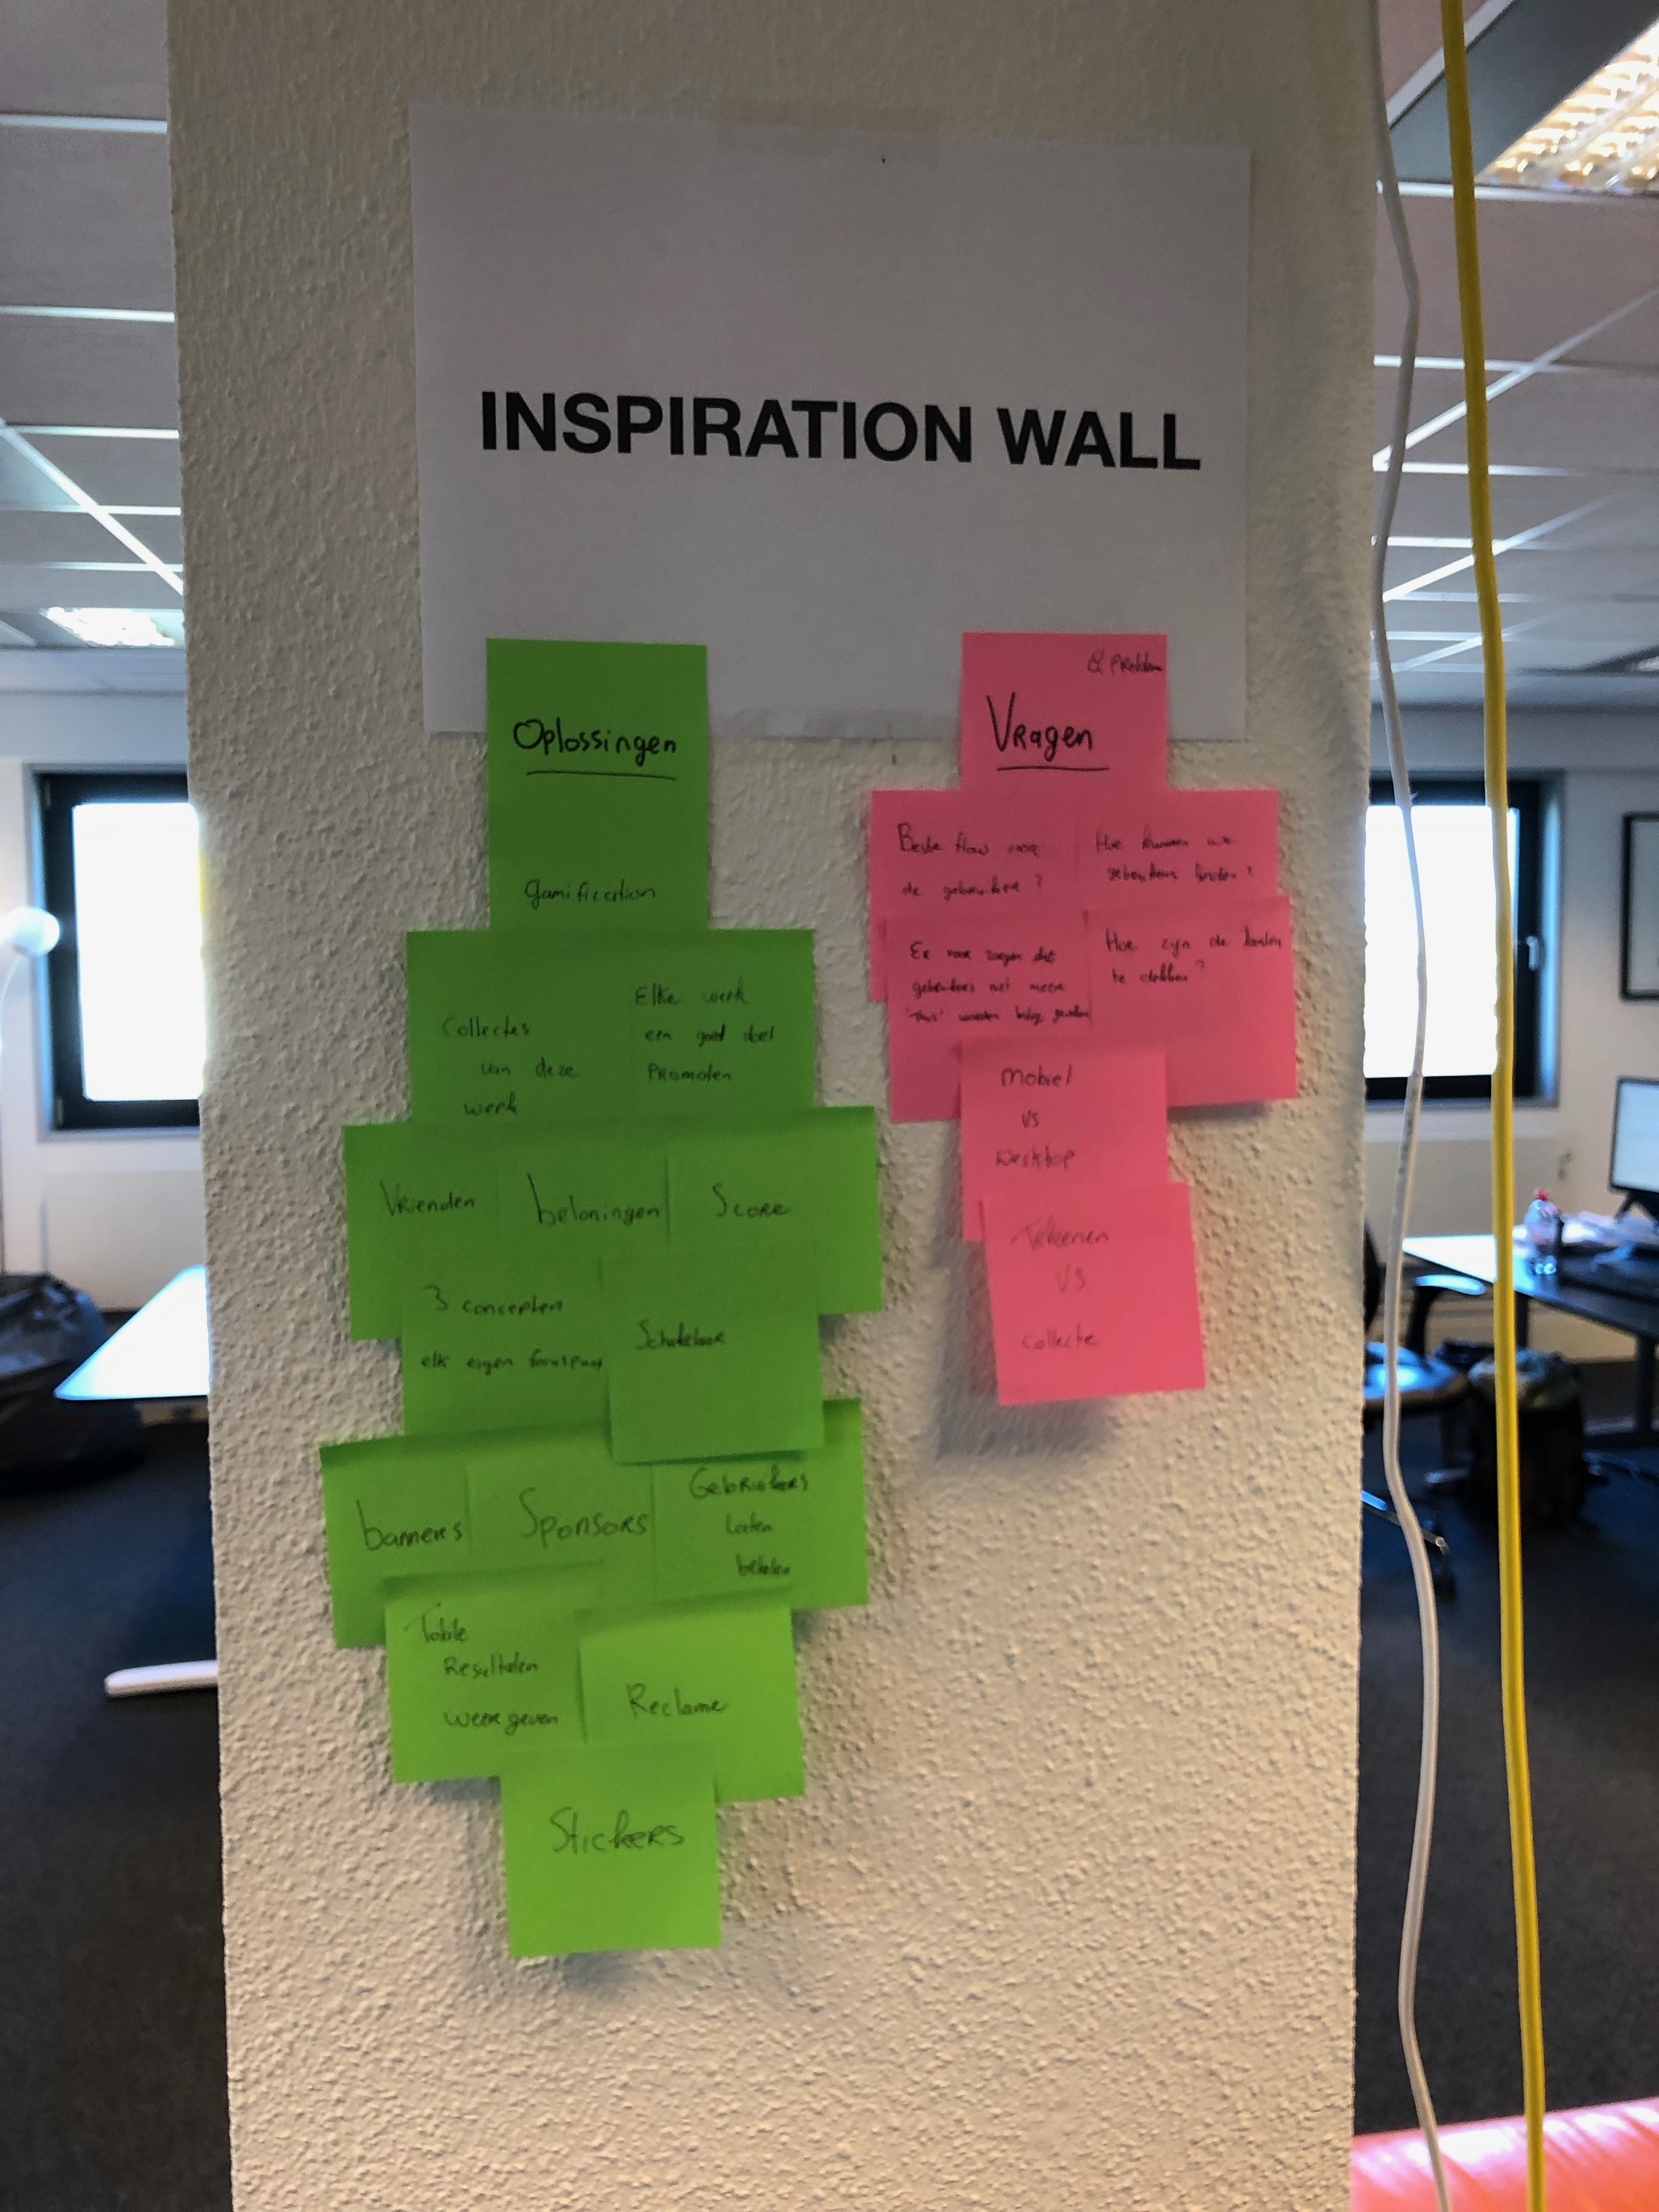 INSPIRATION WALL
Oplossingen
gamification
Collectes
van deze
week
Elke week
een goed doel
promoten
Vrienden
beloningen
Score
3 concepten
elk eigen focuspunt
banners
Sponsors
Gebruikers
laten
betalen
Table
Resultaten
weergeven
Reclame
Stickers
&
Vragen
Beste flow voor
de gebruiker ?
Hoe kunnen we
gebruikers binden ?
Er voor zorgen dat
gebruikers niet meer
'thuis' worden
Hoe zijn de kosten
te dekken ?
Mobiel
vs
Desktop
Tekenen
VS
Collecte